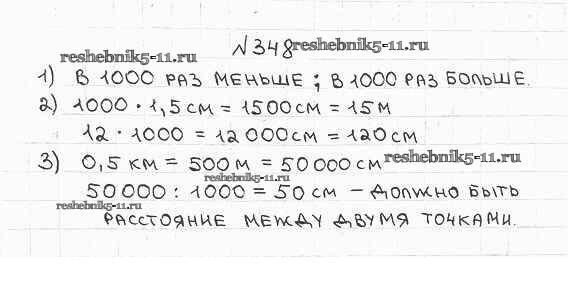 №348 reshebnik5-11.ru
reshebnik5-11.ru
1) В 1000 РАЗ МЕНЬШЕ; В 1000 РАЗ БОЛЬШЕ.
2) 1000 · 1,5 СМ = 1500 СМ = 15 М
12 · 1000 = 12 000 СМ = 120 СМ
3) 0,5 КМ = 500 М = 50 000 СМ reshebnik5-11.ru
reshebnik5-11.ru
50 000 : 1000 = 50 СМ – ДОЛЖНО БЫТЬ
reshebnik5-11.ru
РАССТОЯНИЕ МЕЖДУ ДВУМЯ ТОЧКАМИ.